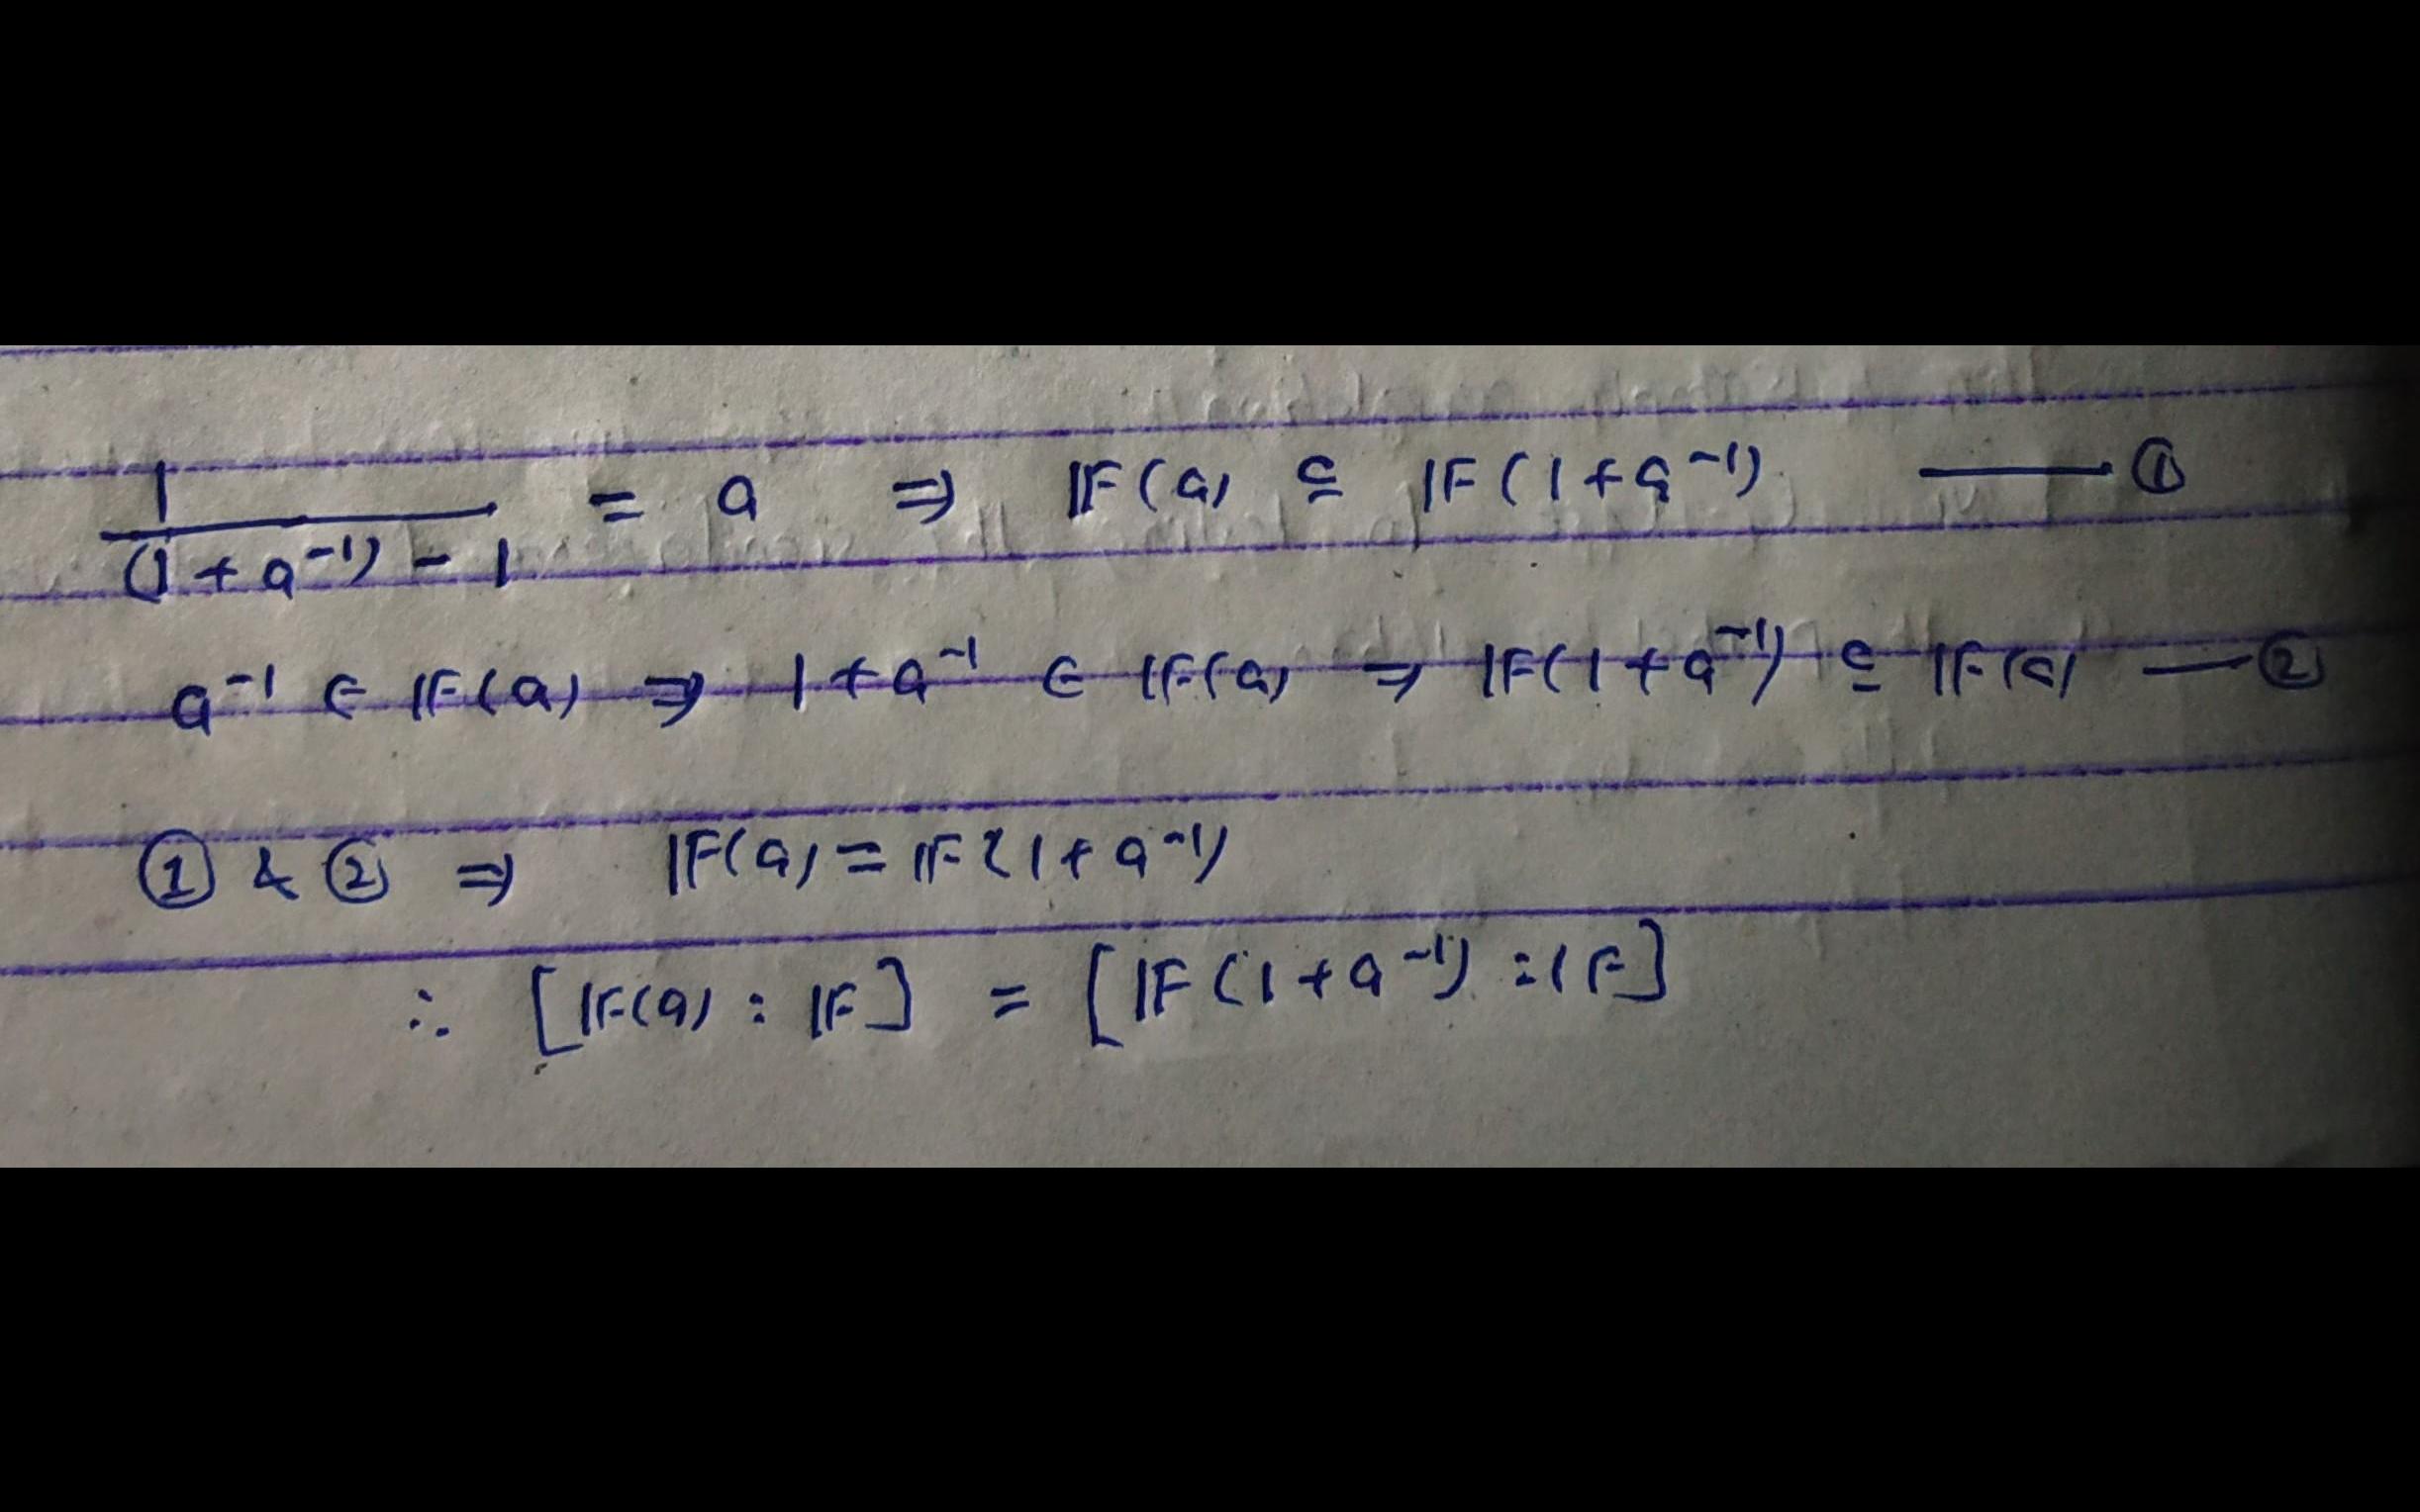 1/((1 + a⁻¹) - 1) = a ⇒ 𝔽(a) ⊆ 𝔽(1 + a⁻¹) —— ①
a⁻¹ ∈ 𝔽(a) ⇒ 1 + a⁻¹ ∈ 𝔽(a) ⇒ 𝔽(1 + a⁻¹) ⊆ 𝔽(a) — ②
① & ② ⇒ 𝔽(a) = 𝔽(1 + a⁻¹)
∴ [𝔽(a) : 𝔽] = [𝔽(1 + a⁻¹) : 𝔽]